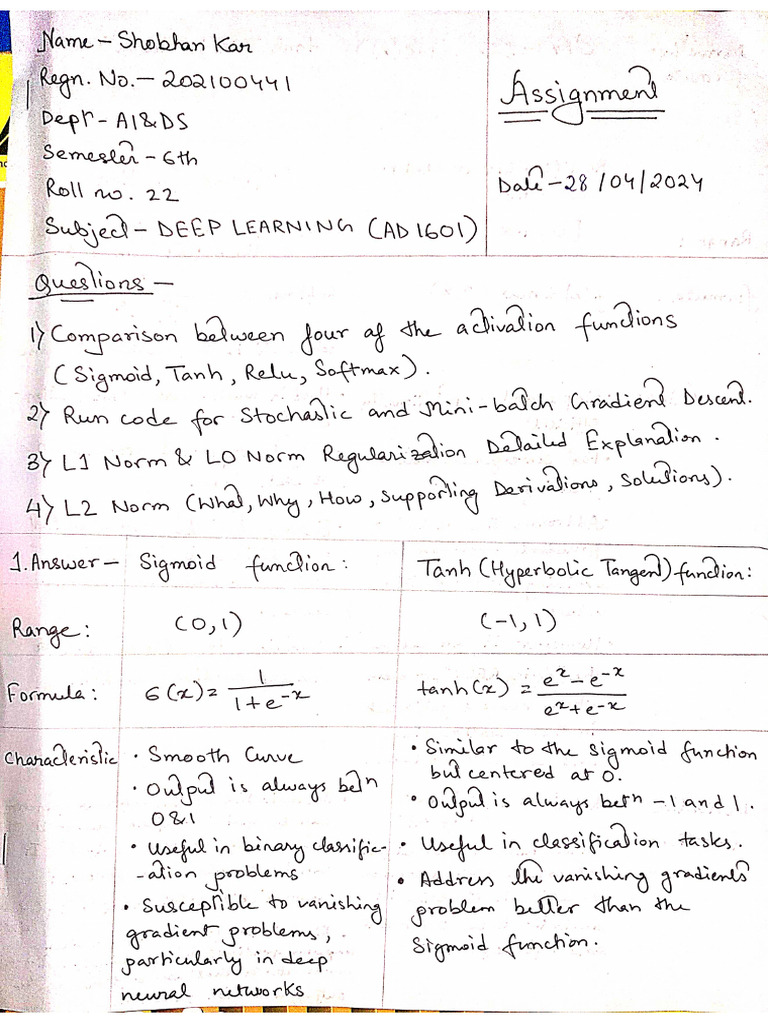 Name - Shobhan Kar
Regn. No. - 202100441
Dept - AI&DS
Semester - 6th
Roll no. 22
Subject - DEEP LEARNING (AD1601)
Assignment
Date - 28/04/2024
Questions -
1) Comparison between four of the activation functions
(Sigmoid, Tanh, Relu, Softmax).
2) Run code for Stochastic and Mini-batch Gradient Descent.
3) L1 Norm & L0 Norm Regularization Detailed Explanation.
4) L2 Norm (What, Why, How, Supporting Derivations, Solutions).
1. Answer - Sigmoid function: Tanh (Hyperbolic Tangent) function:
Range: (0,1) (-1,1)
Formula: σ(x) = 1/(1+e^-x) tanh(x) = (e^x - e^-x)/(e^x + e^-x)
Characteristic
• Smooth Curve
• Output is always betn
0&1
• Useful in binary classific-
-ation problems
• Susceptible to vanishing
gradient problems,
particularly in deep
neural networks
• Similar to the sigmoid function
but centered at 0.
• Output is always betn -1 and 1.
• Useful in classification tasks.
• Address the vanishing gradients
problem better than the
Sigmoid function.